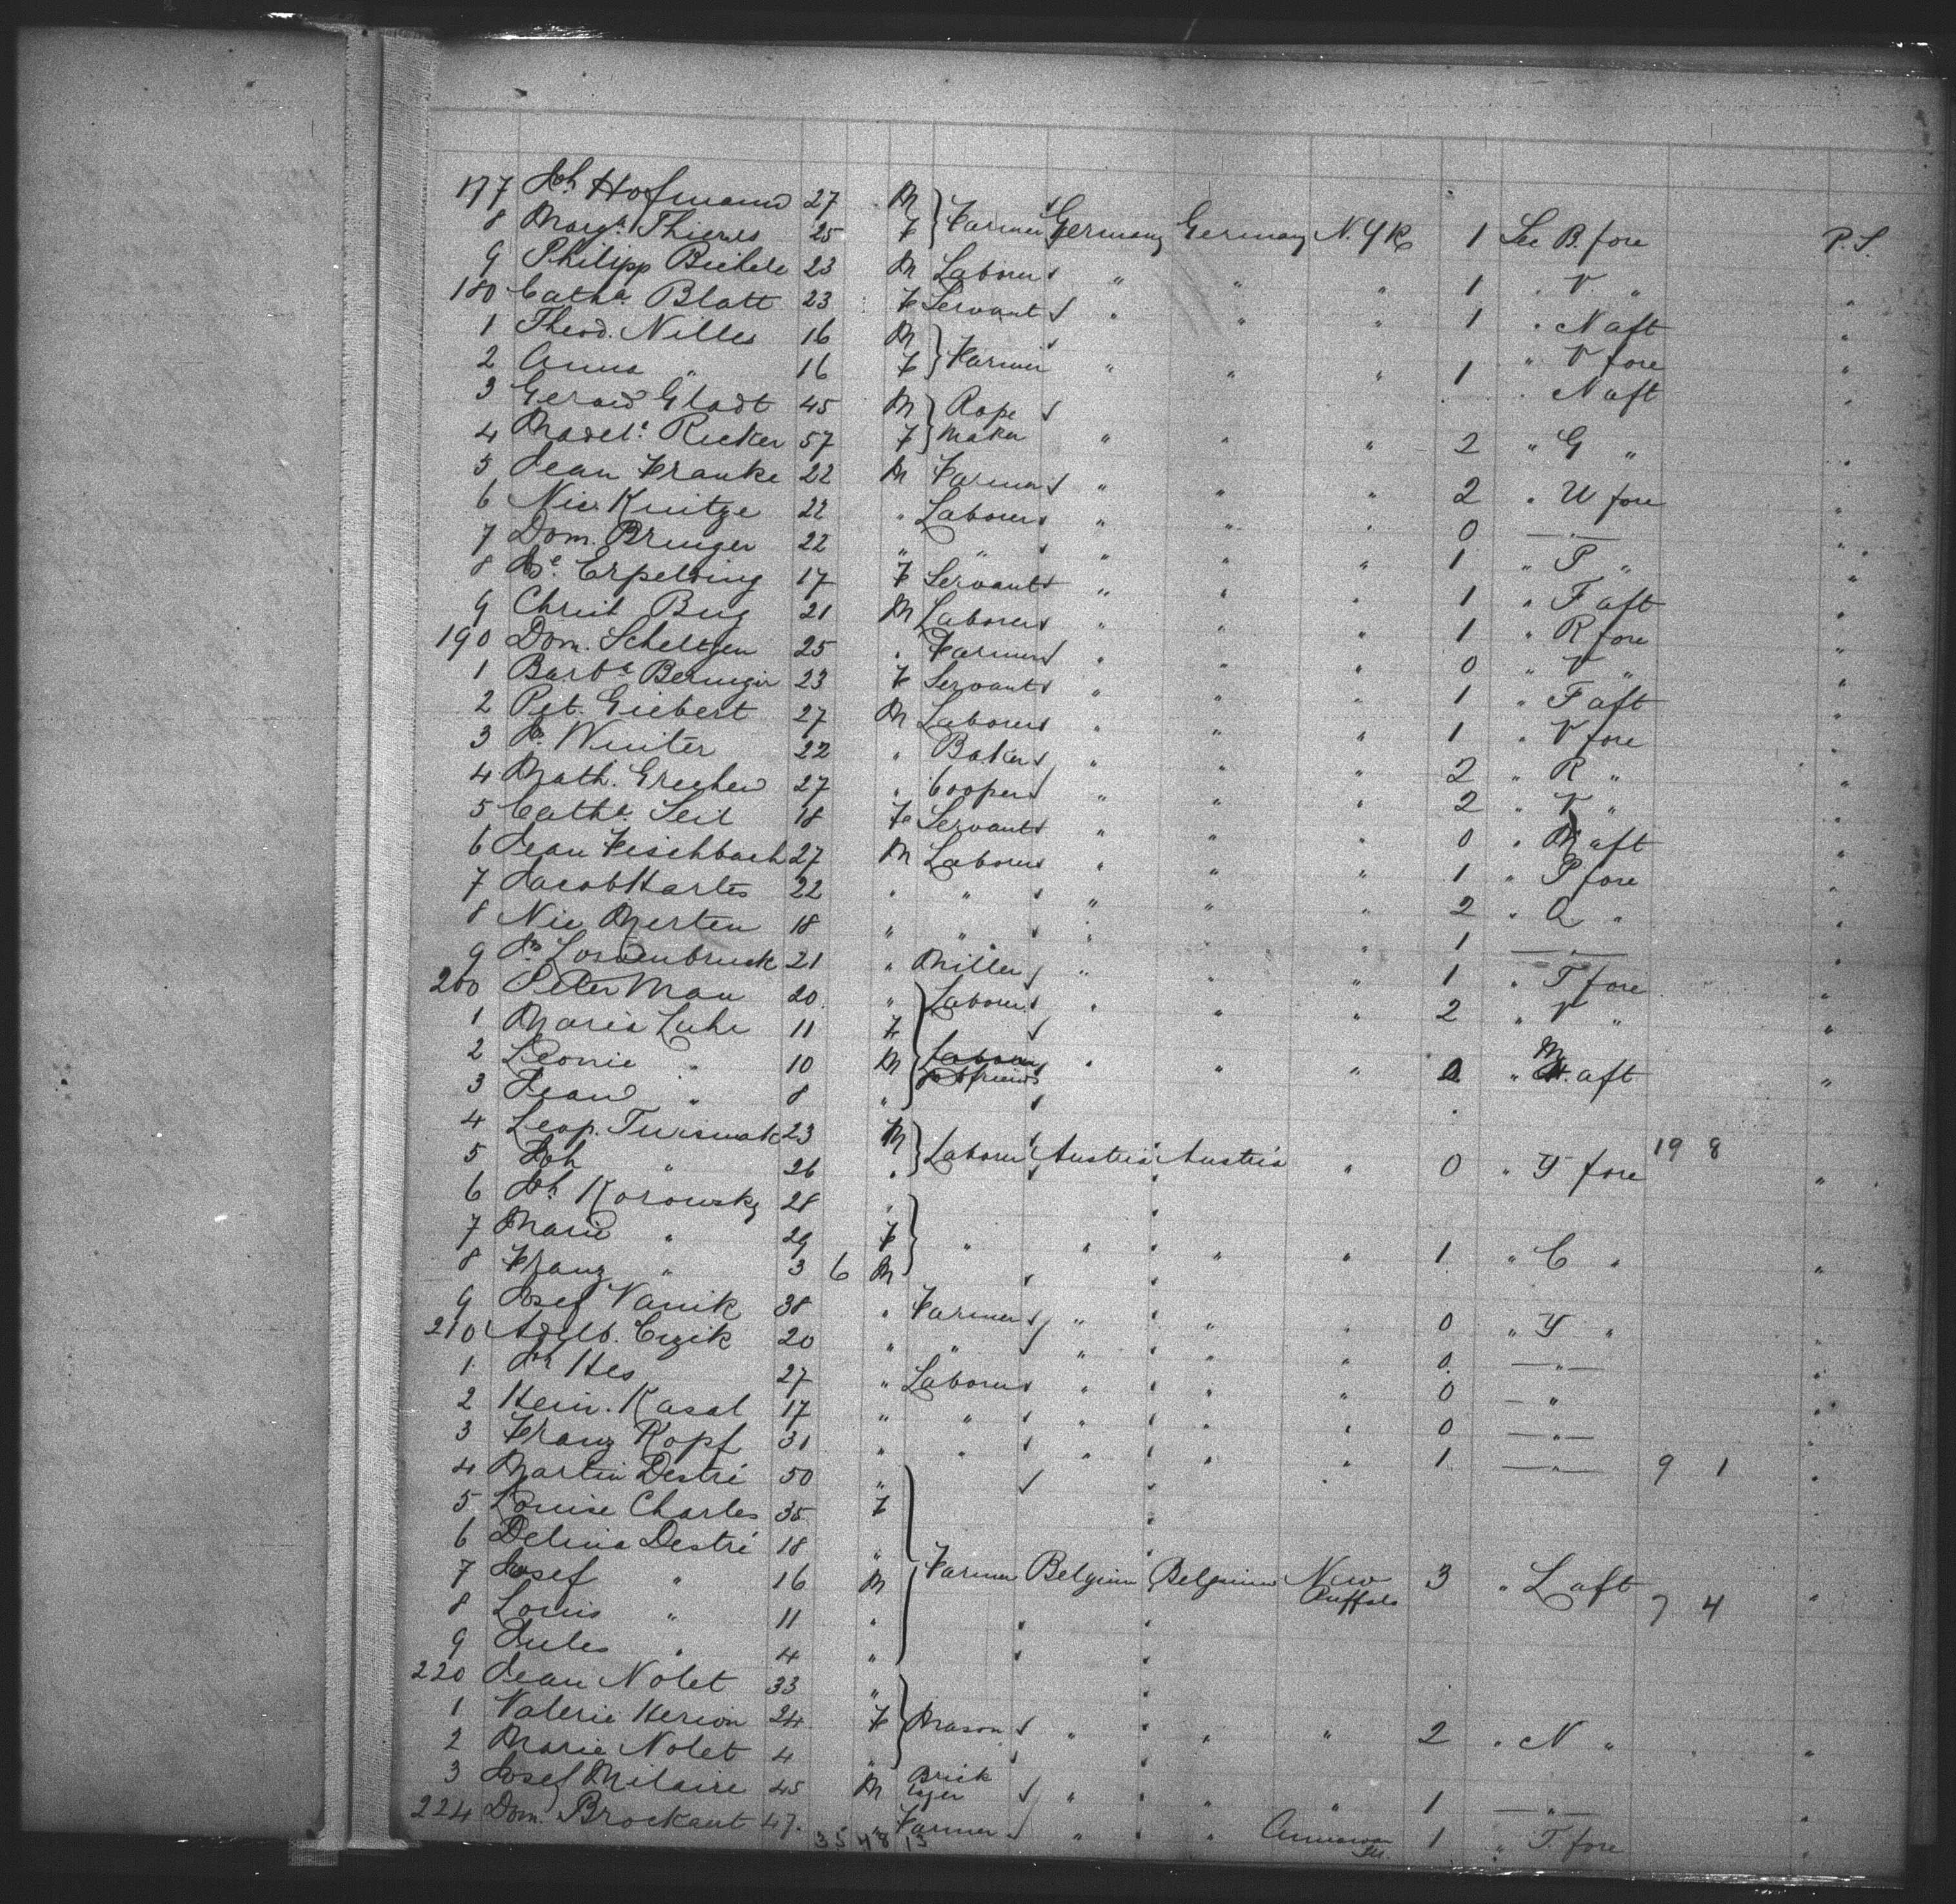 177 Joh Hofmann 27 M } Farmer Germany Germany N.Y.K. 1 See B. fore P.S.
8 Marg.t Thiewes 25 F }
9 Philipp Biehele 23 M Laborer " " " 1 " V "
180 Cath.a Blatt 23 F Servant " " " 1 " N aft "
1 Theod. Nilles 16 M } Farmer " " " 1 " V fore "
2 Anna " 16 F } " N aft "
3 Gerard Gladt 45 M } Rope
4 Madel.e Ricker 57 F } Maker " " " 2 " G " "
5 Jean Franke 22 M Farmer " " " 2 " U fore "
6 Nic. Kuitze 22 " Laborer " " " 0 — " — "
7 Dom. Bringer 22 " " " " " 1 " P " "
8 Erpelding 17 F Servant " " " 1 " F aft "
9 Christ Bug 21 M Laborer " " " 1 " R fore "
190 Dom. Scheltgen 25 " Farmer " " " 0 " V " "
1 Barb.a Beringer 23 F Servant " " " 1 " F aft "
2 Pet. Giebert 27 M Laborer " " " 1 " V fore "
3 Winter 22 " Baker " " " 2 " R " "
4 Math. Grechen 27 " Cooper " " " 2 " V " "
5 Cath.a Seil 18 F Servant " " " 0 " M aft "
6 Jean Fischbach 27 M Laborer " " " 1 " P fore "
7 Jacob Hartes 22 " " " " " 2 " Q " "
8 Nic Merten 18 " " " " " 1 — " — "
9 Losdenbruck 21 " Miller " " " 1 " T fore "
200 Peter Mau 20 " } Laborer " " " 2 " V " "
1 Maria Luhr 11 F
2 Leonie " 10 M Laborer " " " " M aft "
3 Jean " 8 " }
4 Leop. 23 M } Laborer Austria Austria " 0 " Y fore 19 8 "
5 Joh " 26 " }
6 Joh Korowsky 28 " }
7 Marie " 29 F } " " " " 1 " C " "
8 Franz " 3 6 M }
9 Josef Vanik 38 " Farmer " " " 0 " Y " "
210 Adelb. Cizik 20 " " " " " 0 — " — "
1 Joh Hes 27 " Laborer " " " 0 — " "
2 Hein. Kasal 17 " " " " " 0 — " — "
3 Franz Kopf 31 " " " " " 1 — " — 9 1 "
4 Martin Destré 50 " }
5 Louise Charles 35 F
6 Delina Destré 18 "
7 Josef " 16 M } Farmer Belgium Belgium New Buffalo 3 " L aft 7 4 "
8 Louis " 11 "
9 Jules " 4 " }
220 Jean Nolet 33 " }
1 Valerie Herion 24 F } Mason " " " 2 " N " "
2 Marie Nolet 4 " }
3 Josef Milaire 45 M Brick
layer " " " 1 — " — "
224 Dom. Brockaut 47 " Farmer " " Annawan Ill. 1 " T. fore "
35 48 13